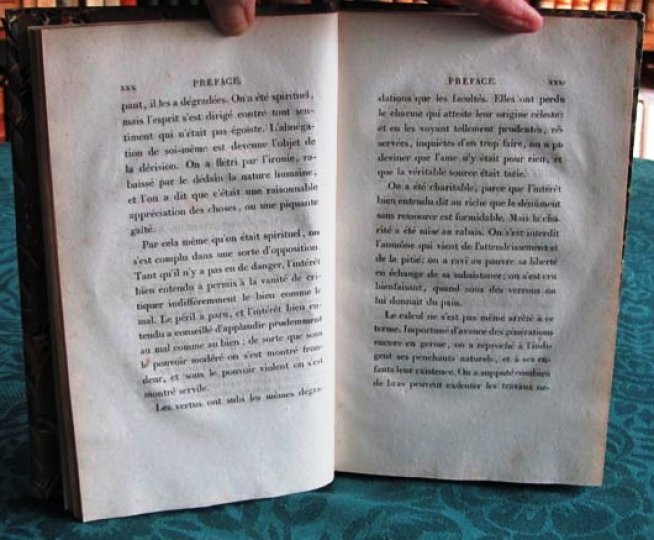 xxx PRÉFACE.
pant, il les a dégradées. On a été spirituel,
mais l'esprit s'est dirigé contre tout sen-
timent qui n'était pas égoïste. L'abnéga-
tion de soi-même est devenue l'objet de
la dérision. On a flétri par l'ironie, ra-
baissé par le dédain la nature humaine,
et l'on a dit que c'était une raisonnable
appréciation des choses, ou une piquante
gaîté.
Par cela même qu'on était spirituel, on
s'est complu dans une sorte d'opposition.
Tant qu'il n'y a pas eu de danger, l'intérêt
bien entendu a permis à la vanité de cri-
tiquer indifféremment le bien comme le
mal. Le péril a paru, et l'intérêt bien en-
tendu a conseillé d'applaudir prudemment
au mal comme au bien; de sorte que sous
le pouvoir modéré on s'est montré fron-
deur, et sous le pouvoir violent on s'est
montré servile.
Les vertus ont subi les mêmes dégra-
PRÉFACE. xxxi
dations que les facultés. Elles ont perdu
le charme qui atteste leur origine céleste;
et en les voyant tellement prudentes, ré-
servées, inquiètes d'en trop faire, on a pu
deviner que l'ame n'y était pour rien, et
que la véritable source était tarie.
On a été charitable, parce que l'intérêt
bien entendu dit au riche que le dénûment
sans ressource est formidable. Mais la cha-
rité a été mise au rabais. On s'est interdit
l'aumône qui vient de l'attendrissement et
de la pitié; on a ravi au pauvre sa liberté
en échange de sa subsistance; on s'est cru
bienfaisant, quand sous des verrous on
lui donnait du pain.
Le calcul ne s'est pas même arrêté à ce
terme. Importuné d'avance des générations
encore en germe, on a reproché à l'indi-
gent ses penchants naturels, et à ses en-
fants leur existence. On a supputé combien
de bras peuvent exécuter les travaux né-